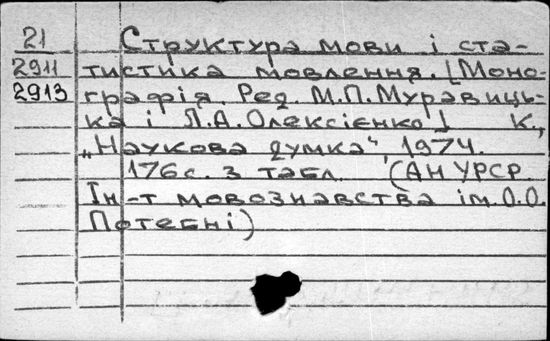 21 Структура мови і ста-
2911 тистика мовлення. [Моно-
2913 графія. Ред. М.П.Муравиць-
ка і Л.А.Олексієнко] К.,
„Наукова думка", 1974.
176с. з табл. (АН УРСР.
Ін-т мовознавства ім.О.О.
Потебні)